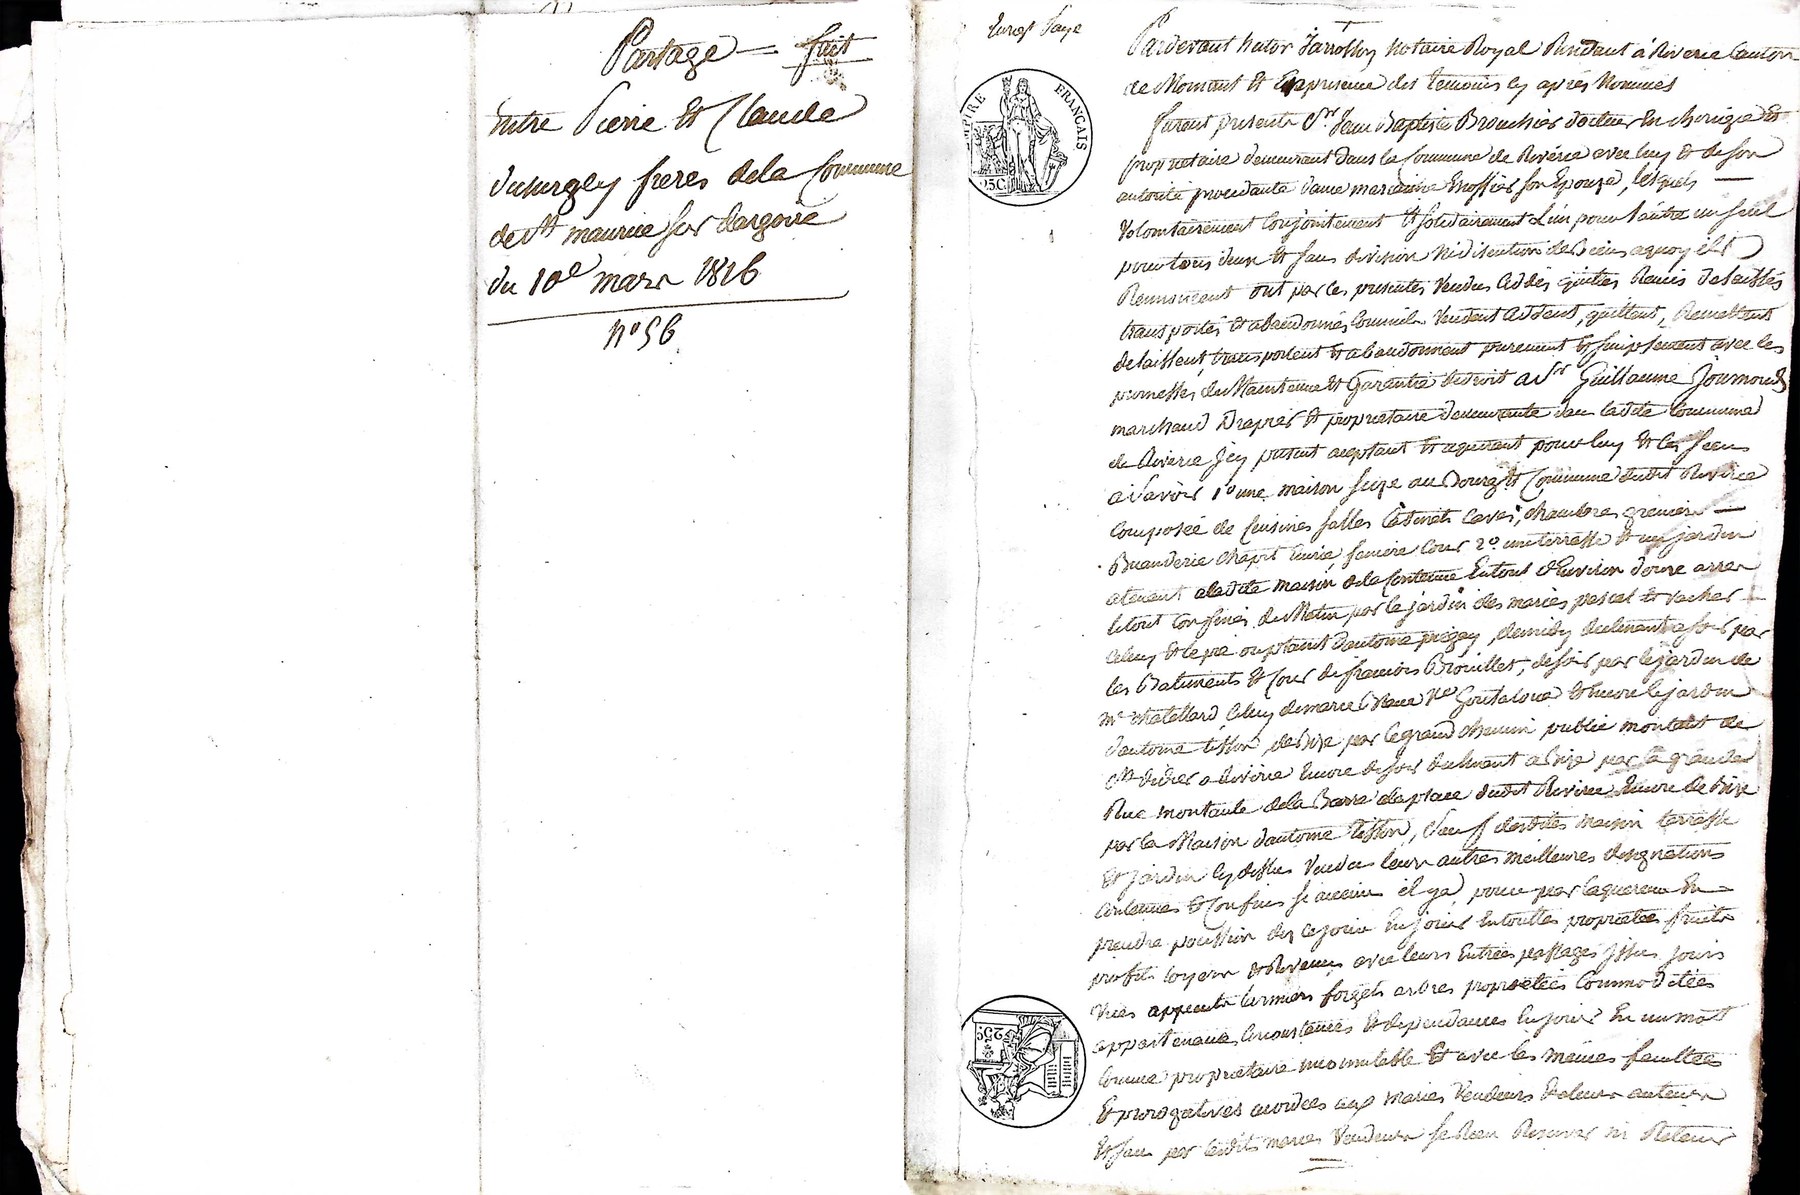 Partage = fait
entre Pierre et Claude
dusurgey freres de la Commune
de St maurice sur dargoire
du 10e mars 1816
no 56
Enregt Saye
Pardevant hector Jarrossey notaire Royal Residant à Riverie Canton
de Mornant et En presence des temoins cy après Nommés
furent presents Sr Jean Baptiste Brouchier docteur En chirurgie Et
proprietaire demeurant dans la Commune de Rivérie avec luy Et de son
autorité procedante dame marianne son Epouze, lesquels
Volontairement Conjointement Et solidairement L'un pour l'autre un seul
pour tous deux Et sans division Ni discution de Biens aquoy ils
Renoncent ont par ces presentes Vendus Cedés quittés Remis delaissés
transportés Et abandonnés Comme Vendent Cedent, quittent, Remettent
delaissent, transportent Et abandonnent purement Et simplement avec les
promesses de Maintenue Et Garantie de droit a Sr Guillaume Joumond
marchand Drapier Et proprietaire demeurante dans ladite Commune
de Riverie Icy present aceptant Et aquerant pour luy Et les siens
a Savoir 1o une maison size au Bourg Et Commune dudit Riverie
Composée de Cuisines salles Cabinets Caves, chambres greniers
Buanderie chapit Ecurie, feniere Cour 2o une terrasse Et un jardin
atenant a ladite maison de la Contenue En tout d'Environ douze arres
le tout Confiné de Matin par le jardin des mariés pascal Et vacher
Celuy Et le pré ou plant d'antoine de midy declinant a soir par
les Batiments Et Cour de francois Brouillet, de soir par le jardin de
Mr chatellard Celuy de marie Ve Goutaloue Et Encore le jardin
d'antoine tisson, de Bize par le grand chemin public montant de
St didier a Riverie Encore de soir declinant a Bize par la grande
Rue montante de la Barre a la place dudit Riverie Encore de Bize
par la Maison d'antoine tisson, Sauf desdites maison terrasse
Et jardin Cy dessus Vendus leurs autres meilleures designations
Contenues Et Confins si aucuns il y a, pour par l'aquereur En
prendre possession dez ce jour En jouir En touttes proprietés fruits
profits loyers Et Revenus avec leurs Entrées passages Issues jours
Vues appents larmiers forgets arbres proprietés Commodités
appartenances Circonstances Et dependances En jouir En un mot
Comme proprietaire incomutable Et avec les mêmes facultés
Et prerogatives acordées aux mariés Vendeurs Et a leurs auteurs
Et sans par lesdits mariés Vendeurs se Rien Reserver ni Retenir
EMPIRE FRANCAIS
25C.